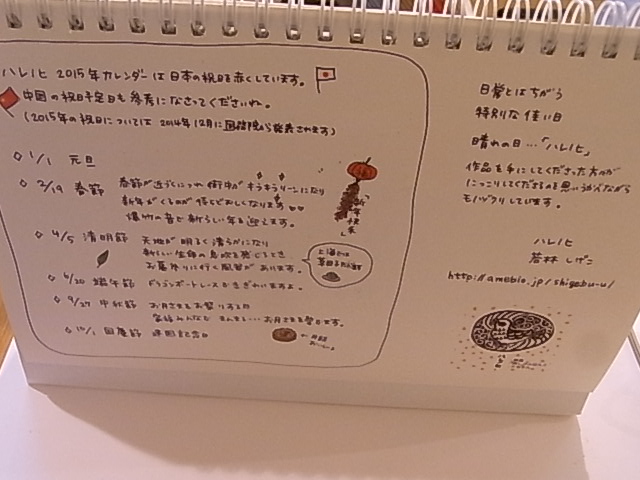 ハレノヒ 2015年カレンダーは日本の祝日を赤くしています。
中国の祝日予定日も参考になさってくださいね。
(2015年の祝日については2014年12月に国務院から発表されます)
◇ 1/1 元旦
◇ 2/19 春節 春節が近づくにつれ街中がキラキラリーンになり
新年がくるのが待ちどおしくなります
爆竹の音と新らしい年を迎えます。
新年快乐
◇ 4/5 清明節 天地が明るく清らかになり
新しい生命の息吹を感じるとき
お墓参りに行く風習があります。
上海では
◇ 6/20 端午節 ドラゴンボートレースがにぎわいますよ。
◇ 9/27 中秋節 お月さまをお祭りする日
家族みんなで まんまる…お月さまを祭ります。
◇ 10/1 国慶節 建国記念日
月餅
日常とはちがう
特別な佳い日
晴れの日…「ハレノヒ」
作品を手にしてくださった方々が
にっこりしてくださるのを思いうかべながら
モノヅクリしています。
ハレノヒ
若林 しげこ
http://ameblo.jp/shigebu-u/